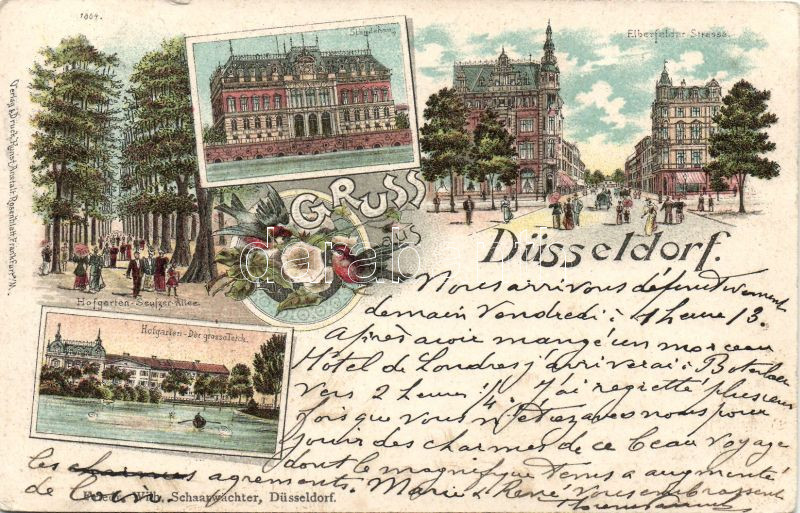 1864.
Ständehaus
Elberfelder Strasse.
Verlag & Druck
GRUSS
aus
Düsseldorf.
Hofgarten-Seufzer-Allee.
Hofgarten-Der grosse Teich.
Nous arrivons définitivement
demain Vendredi à 1 heure 13
Après avoir mangé un morceau
Hôtel de Londres j'arriverai à
vers 2 heures 1/4. J'ai regretté plusieurs
fois que vous n'étiez avec nous pour
jouir des charmes de ce beau voyage
dont le magnifique temps a augmenté
les charmes agréments. Marie & René vous embrassent
de
Friedr. Wilh. Schaarwächter, Düsseldorf.